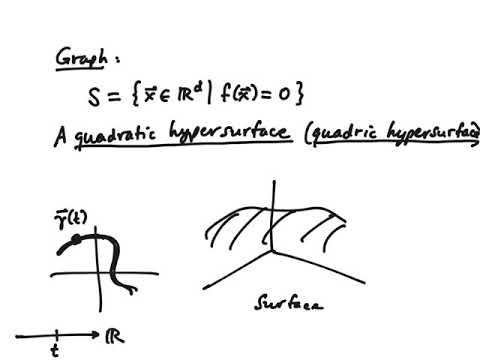 Graph:
S = { x⃗ ∈ ℝᵈ | f(x⃗) = 0 }
A quadratic hypersurface (quadric hypersurface
γ⃗(t)
Surface
ℝ
t